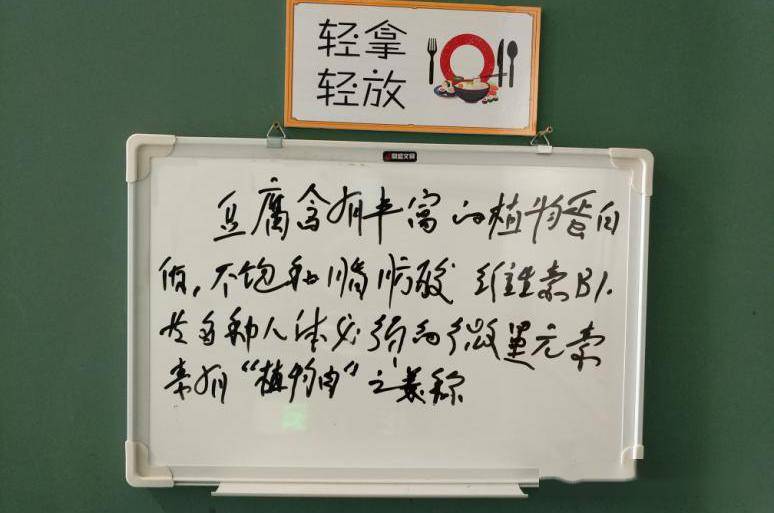 轻拿
轻放
豆腐含有丰富的植物蛋白
质,不饱和脂肪酸 维生素B1.
及各种人体必须的微量元素
素有“植物肉”之美称